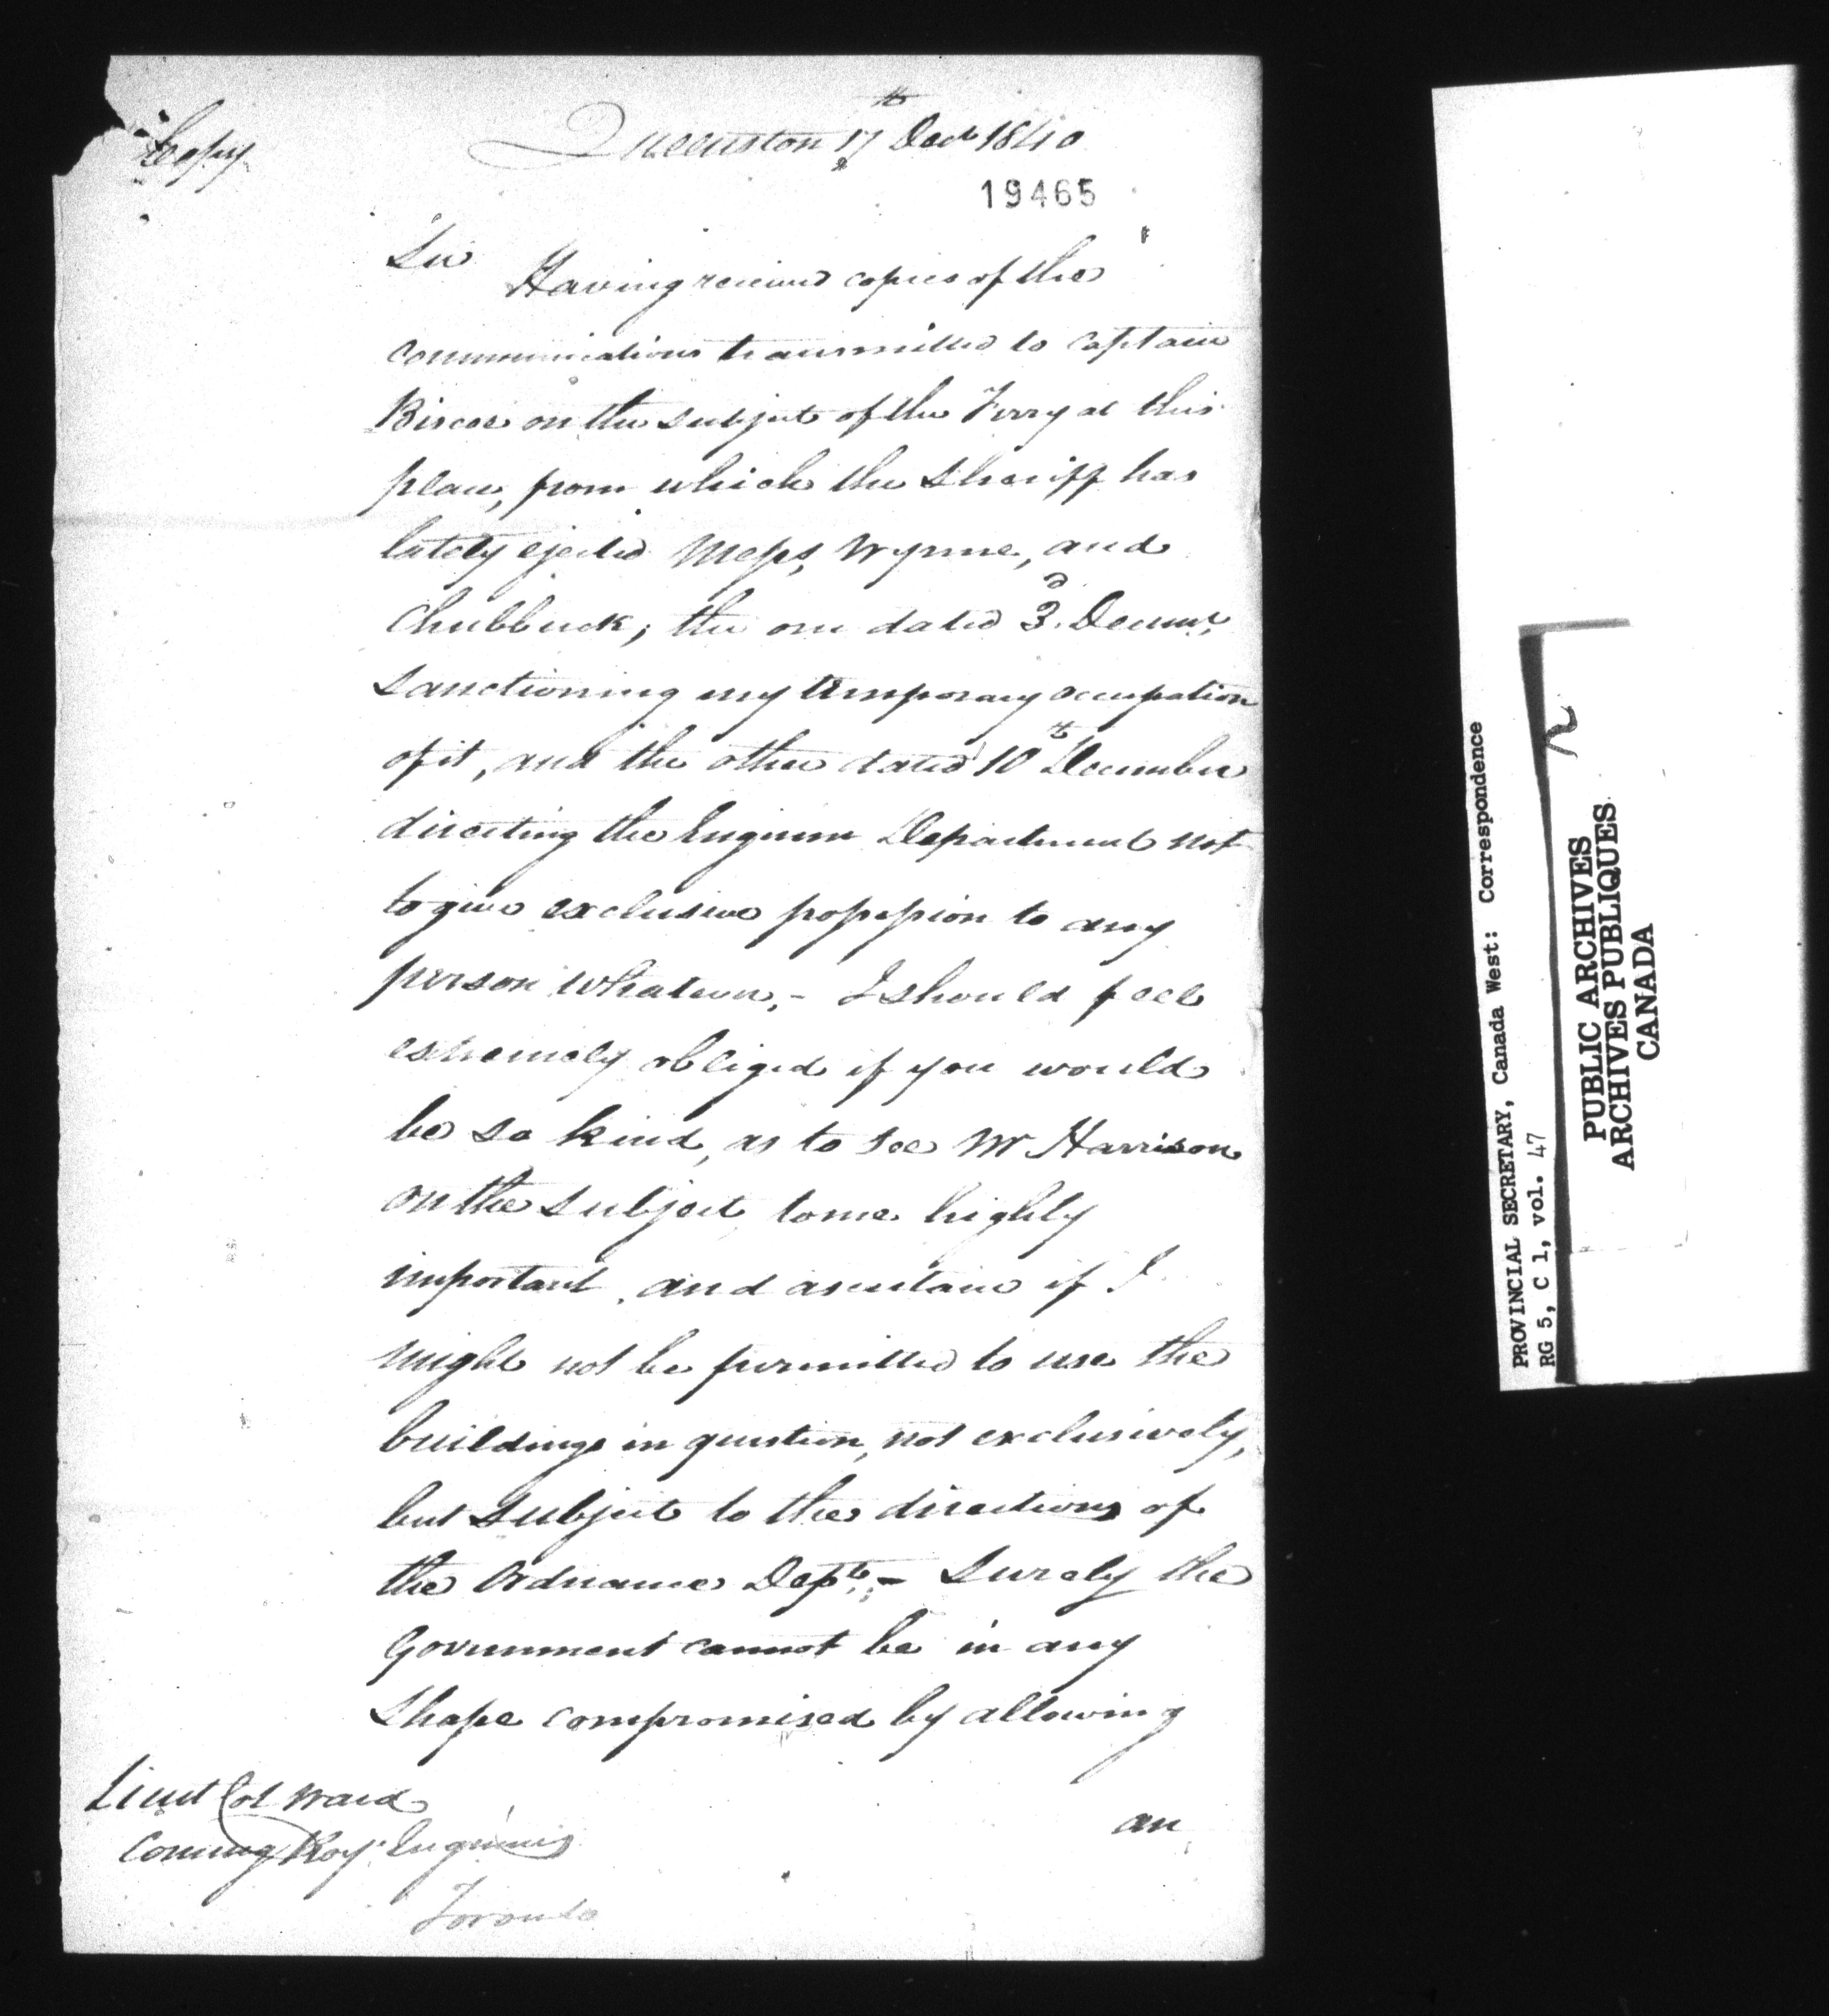 Copy
Queenston 17th Decr 1840
19465
Sir
Having received copies of the
communications transmitted to Captain
Biscoe on the subject of the Ferry at this
place, from which the Sheriff has
lately ejected Messrs, Wynne, and
Chubbuck; the one dated 3d. Decemr,
sanctioning my temporary occupation
of it, and the other dated 10th December
directing the Engineer Department not
to give exclusive possession to any
person whatever,- I should feel
extremely obliged if you would
be so kind, as to see Mr Harrison
on the subject, to me highly
important, and ascertain if I
might not be permitted to use the
buildings in question, not exclusively,
but subject to the directions of
the Ordnance Dept.;- Surely the
Government cannot be in any
shape compromised by allowing
an
Lieut Col Ward
Commg Roy. Engineers
Toronto
PROVINCIAL SECRETARY, Canada West: Correspondence
RG 5, C 1, vol. 47
PUBLIC ARCHIVES
ARCHIVES PUBLIQUES
CANADA